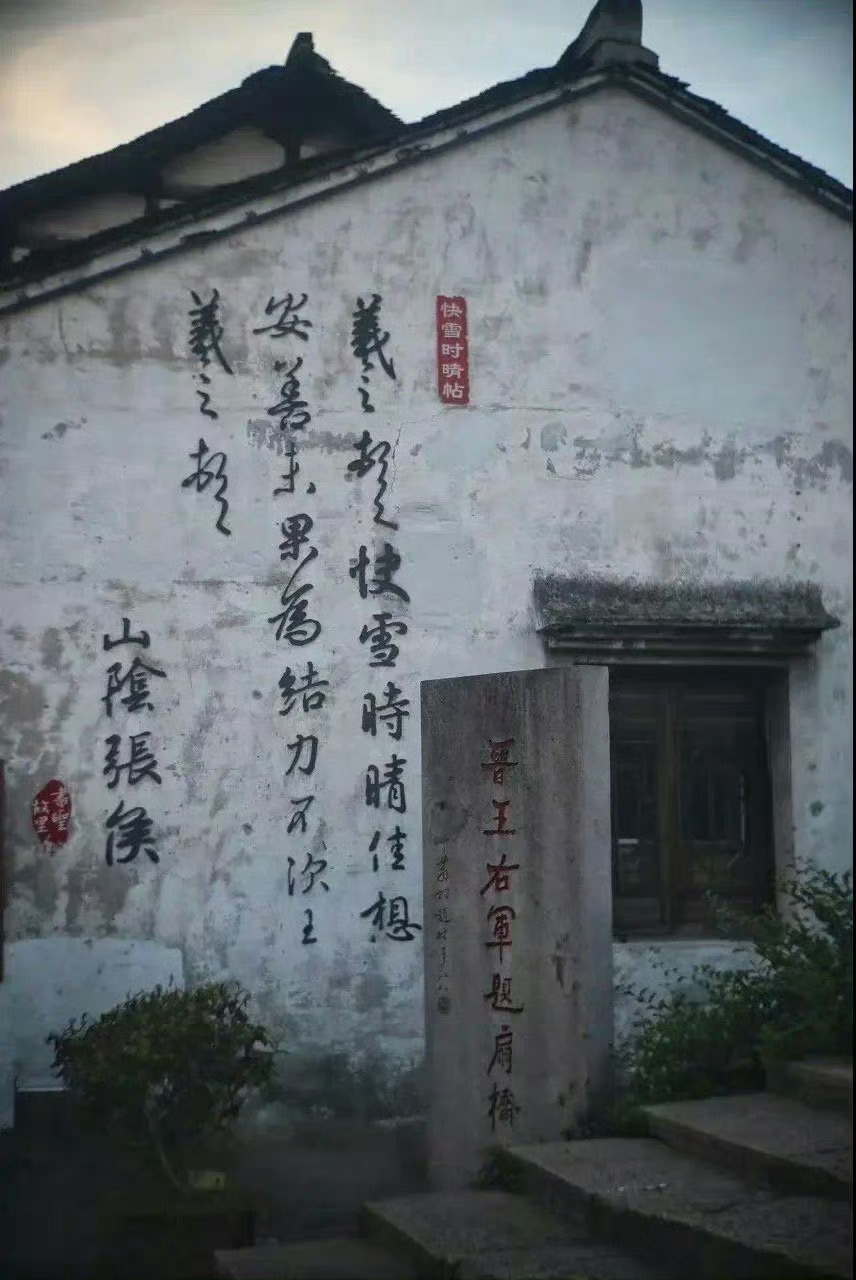 快雪时晴帖
羲之顿首快雪時晴佳想
安善未果為結力不次王
羲之顿首
山陰張侯
書聖
故里
晋王右軍題扇橋